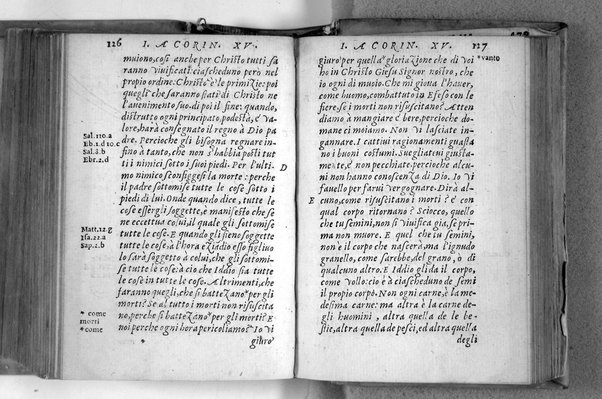 126 I. A CORIN. XV.
muiono, così anche per Christo tutti sa
ranno viuificati: ciascheduno però nel
proprio ordine. Christo è le primizie: poi
quegli che saranno stati di Christo ne
l'auenimento suo. di poi il fine: quando,
distrutto ogni principato, podestà, e va
lore, harà consegnato il regno à Dio pa
dre. Percioche gli bisogna regnare in-
fino à tanto, che non s'habbia posti tut
ti i nimici sotto i suoi piedi. Per l'ulti
mo nimico sconfiggesi la morte: perche
il padre sottomise tutte le cose sotto i
piedi di lui. Onde quando dice, tutte le
cose essergli soggette, è manifesto che se
ne eccettua colui, il quale gli sottomise
tutte le cose. E quando gli sieno soggette
tutte le cose à l'hora eziadio esso figliuo
lo sarà soggetto à colui, che gli sottomi-
se tutte le cose: à cio che Iddio sia tutte
le cose in tutte le cose. Altrimenti, che
faranno quegli, che si battezano* per gli
morti? Se al tutto i morti non risuscita
no, perche si battezano* per gli morti? E
noi perche ogni hora pericoliamo? Io vi
giuro
Sal. 110. a
Eb. 1. d 10. c
Sal. 8. b
Ebr. 2. d
D
Matt. 22. g
Isa. 22. a
Sap. 2. b
* come
morti
* come
I. A CORIN. XV. 127
giuro per quella* gloriazione che di voi
hò in Christo Giesu Signor nostro, che
io ogni dì muoio. Che mi gioua l'hauer,
come huomo, combattuto in Efeso con le
fiere, se i morti non risuscitano? Atten
diamo à mangiare è bere, percioche do-
mane ci moiamo. Non vi lasciate in-
gannare. I cattiui ragionamenti guasta
no i buoni costumi. Suegliateui giusta-
mente, è non pecchiate. percioche alcu-
ni non hanno conoscenza di Dio. Io vi
fauello per farui vergognare. Dirà al-
cuno, come risuscitano i morti? è con
qual corpo ritornano? Sciocco, quello
che tu semini, non si viuifica gia, se pri-
ma non muore. E quel che tu semini,
non è il corpo che nascerà, ma l'ignudo
granello, come sarebbe, del grano, ò di
qualcuno altro. E Iddio gli dà il corpo,
come volle: cio è à ciascheduno de semi
il proprio corpo. Non ogni carne, è la me-
desima carne: ma altra è la carne de-
gli huomini, altra quella de le be-
stie, altra quella de pesci, ed altra quella
degli
*vanto
E